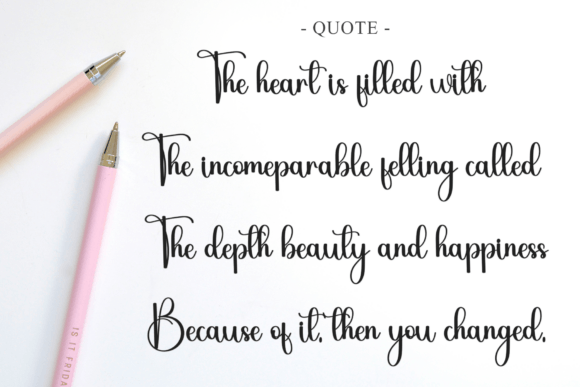 - QUOTE -
The heart is filled with
The incomeparable felling called
The depth beauty and happiness
Because of it, then you changed,
IS IT FRIDA